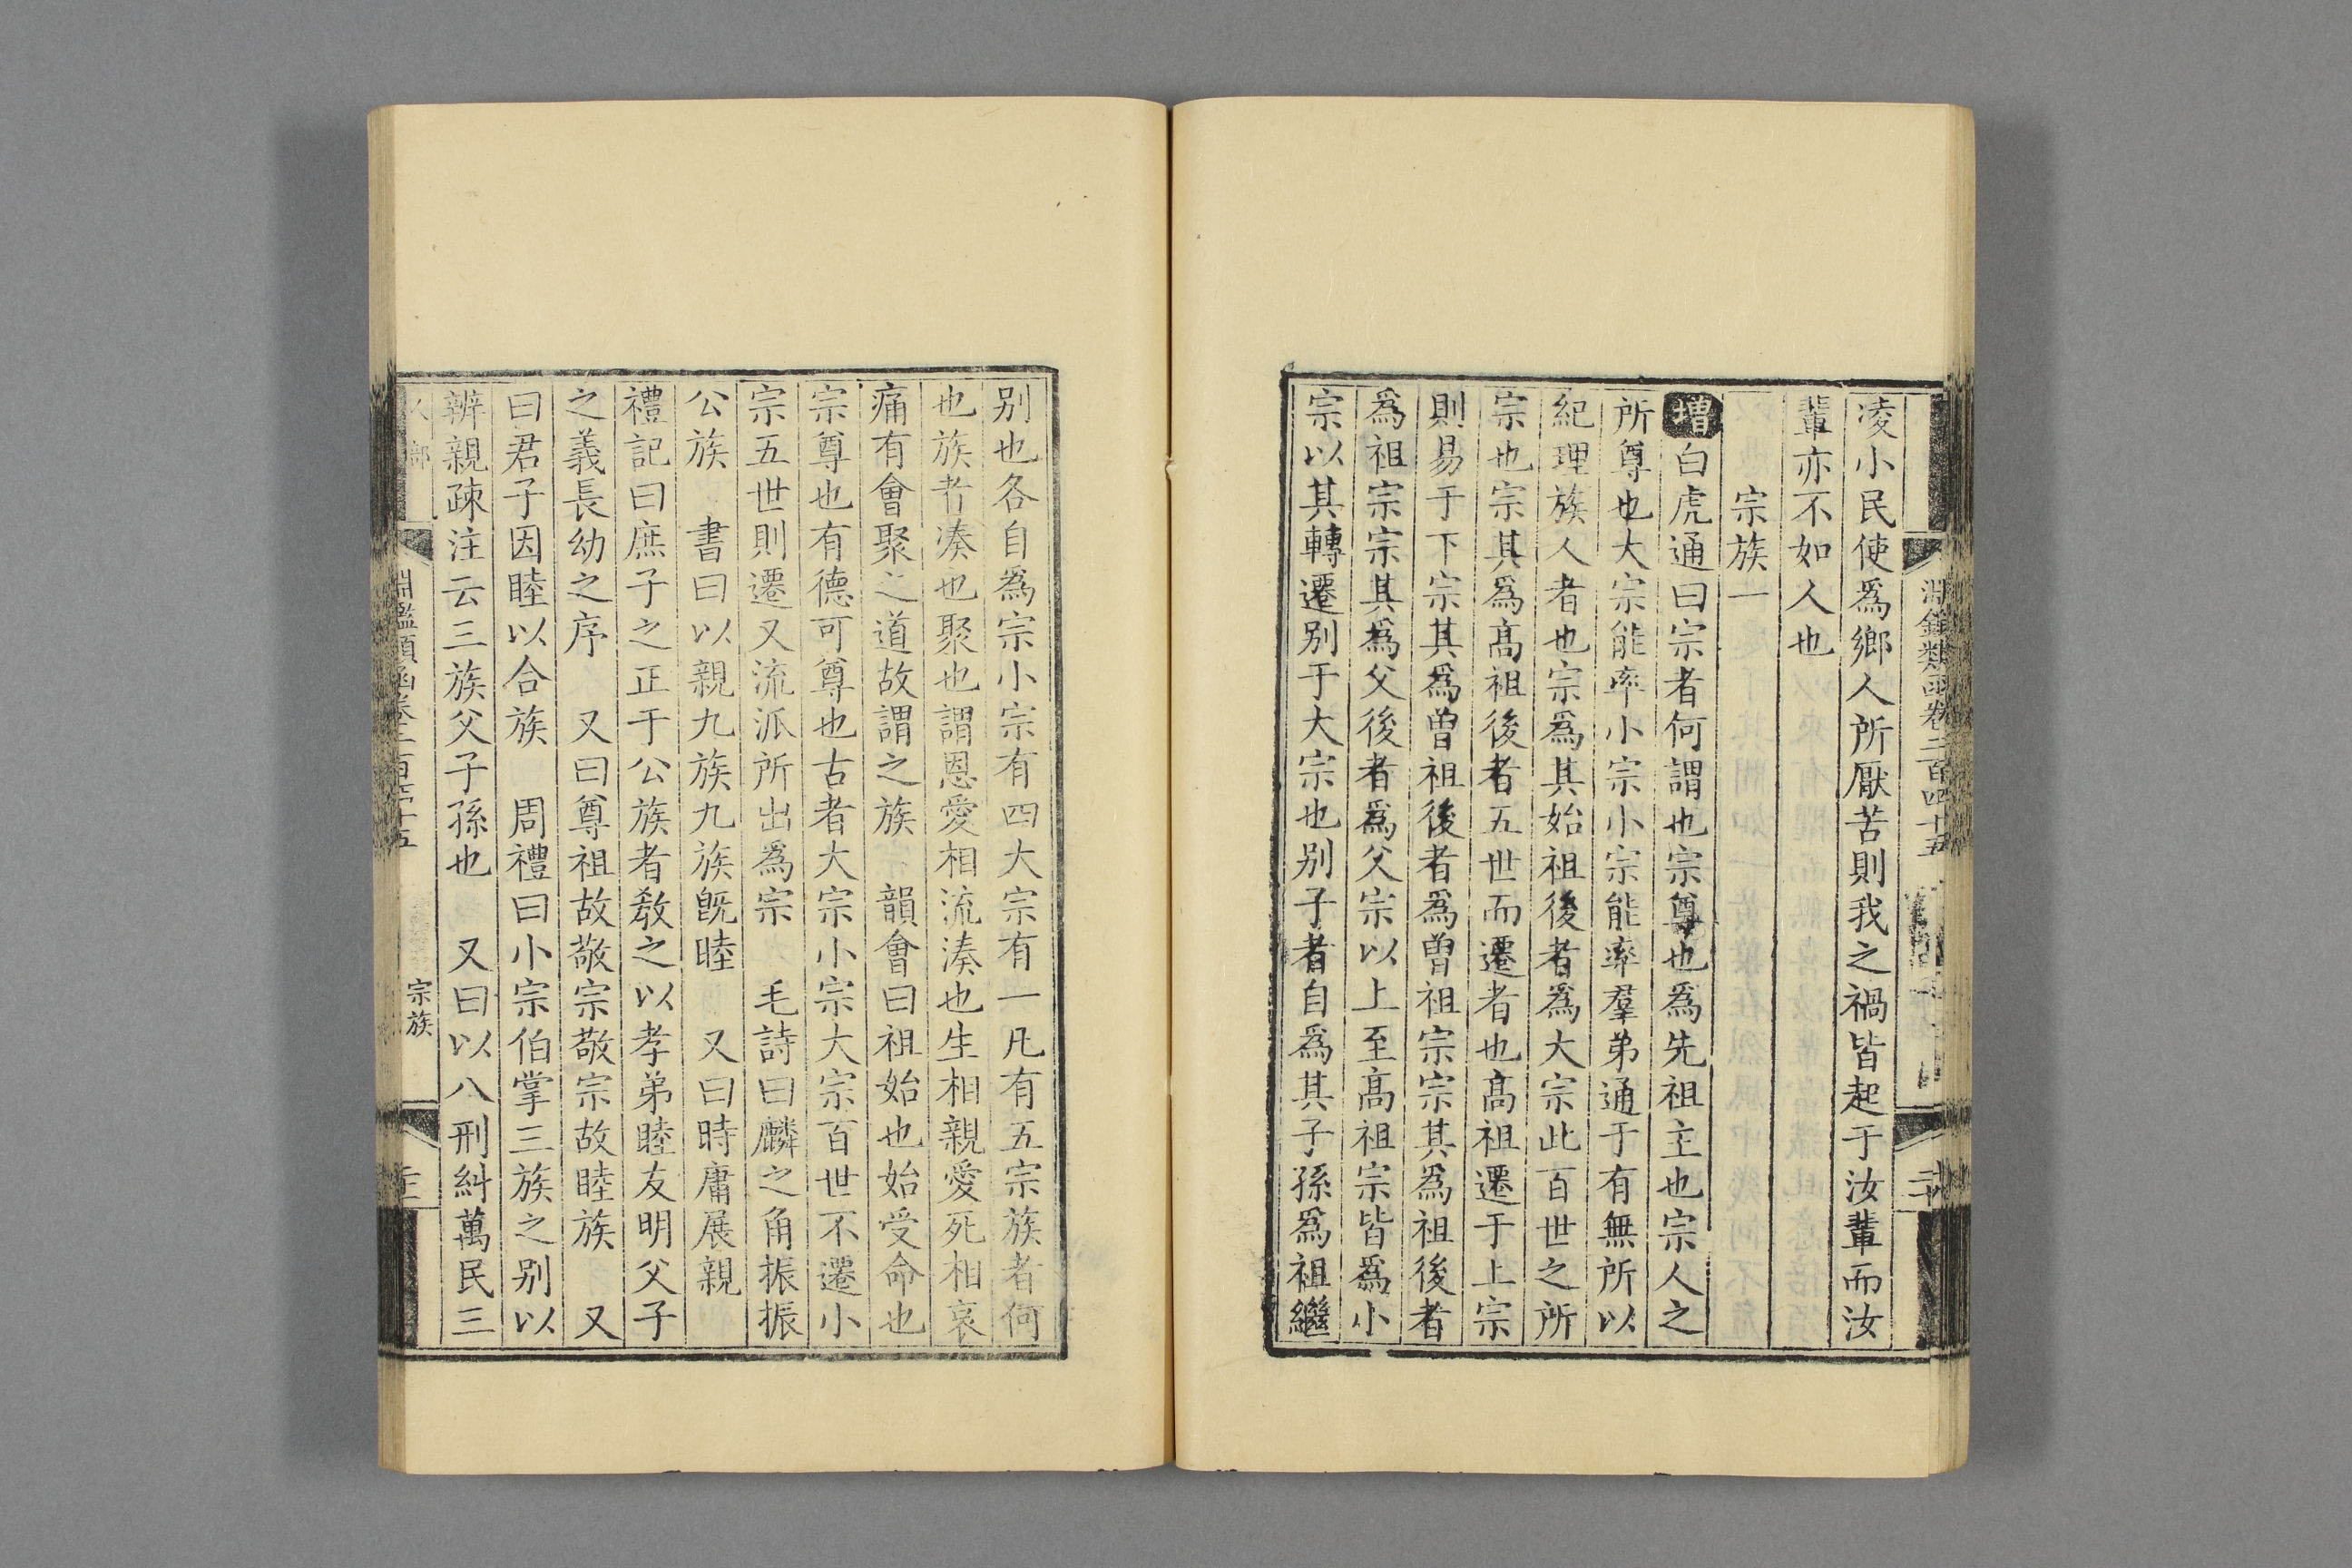 淵鑑類函卷二百四十五
凌小民使爲鄉人所厭苦則我之禍皆起于汝輩而汝
輩亦不如人也
宗族一
增白虎通曰宗者何謂也宗尊也爲先祖主也宗人之
所尊也大宗能率小宗小宗能率羣弟通于有無所以
紀理族人者也宗爲其始祖後者爲大宗此百世之所
宗也宗其爲髙祖後者五世而遷者也髙祖遷于上宗
則易于下宗其爲曾祖後者爲曾祖宗宗其爲祖後者
爲祖宗宗其爲父後者爲父宗以上至髙祖宗皆爲小
宗以其轉遷别于大宗也别子者自爲其子孫爲祖繼
别也各自爲宗小宗有四大宗有一凡有五宗族者何
也族者湊也聚也謂恩愛相流湊也生相親愛死相哀
痛有會聚之道故謂之族 韻會曰祖始也始受命也
宗尊也有德可尊也古者大宗小宗大宗百世不遷小
宗五世則遷又流派所出爲宗 毛詩曰麟之角振振
公族 書曰以親九族九族旣睦 又曰時庸展親
禮記曰庶子之正于公族者敎之以孝弟睦友明父子
之義長幼之序 又曰尊祖故敬宗敬宗故睦族 又
曰君子因睦以合族 周禮曰小宗伯掌三族之别以
辨親疎注云三族父子孫也 又曰以八刑糾萬民三
淵鑑類函卷二百四十五
宗族